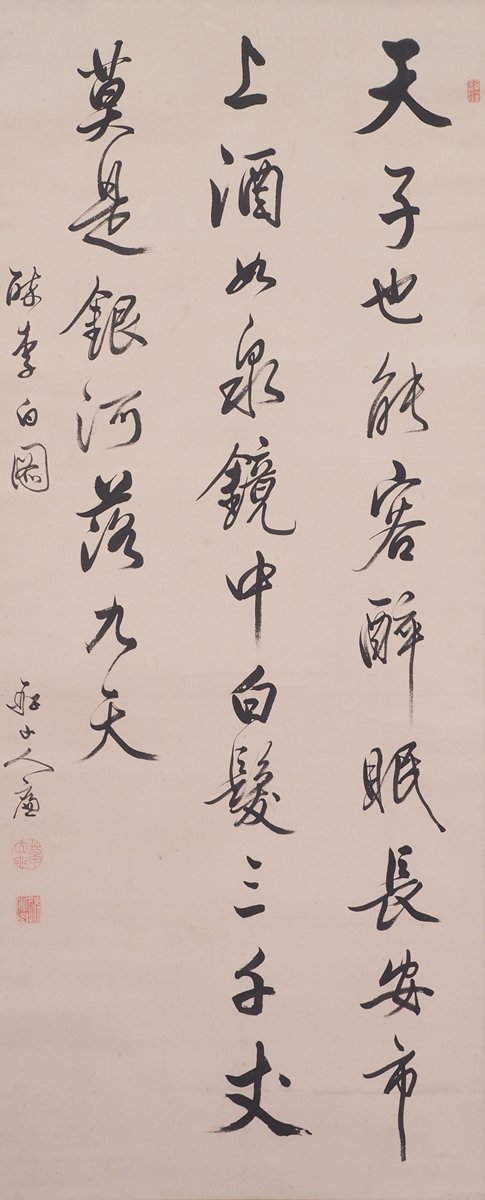 天子也能容醉眠長安市
上酒如泉鏡中白髮三千丈
莫是銀河落九天
酔李白圖